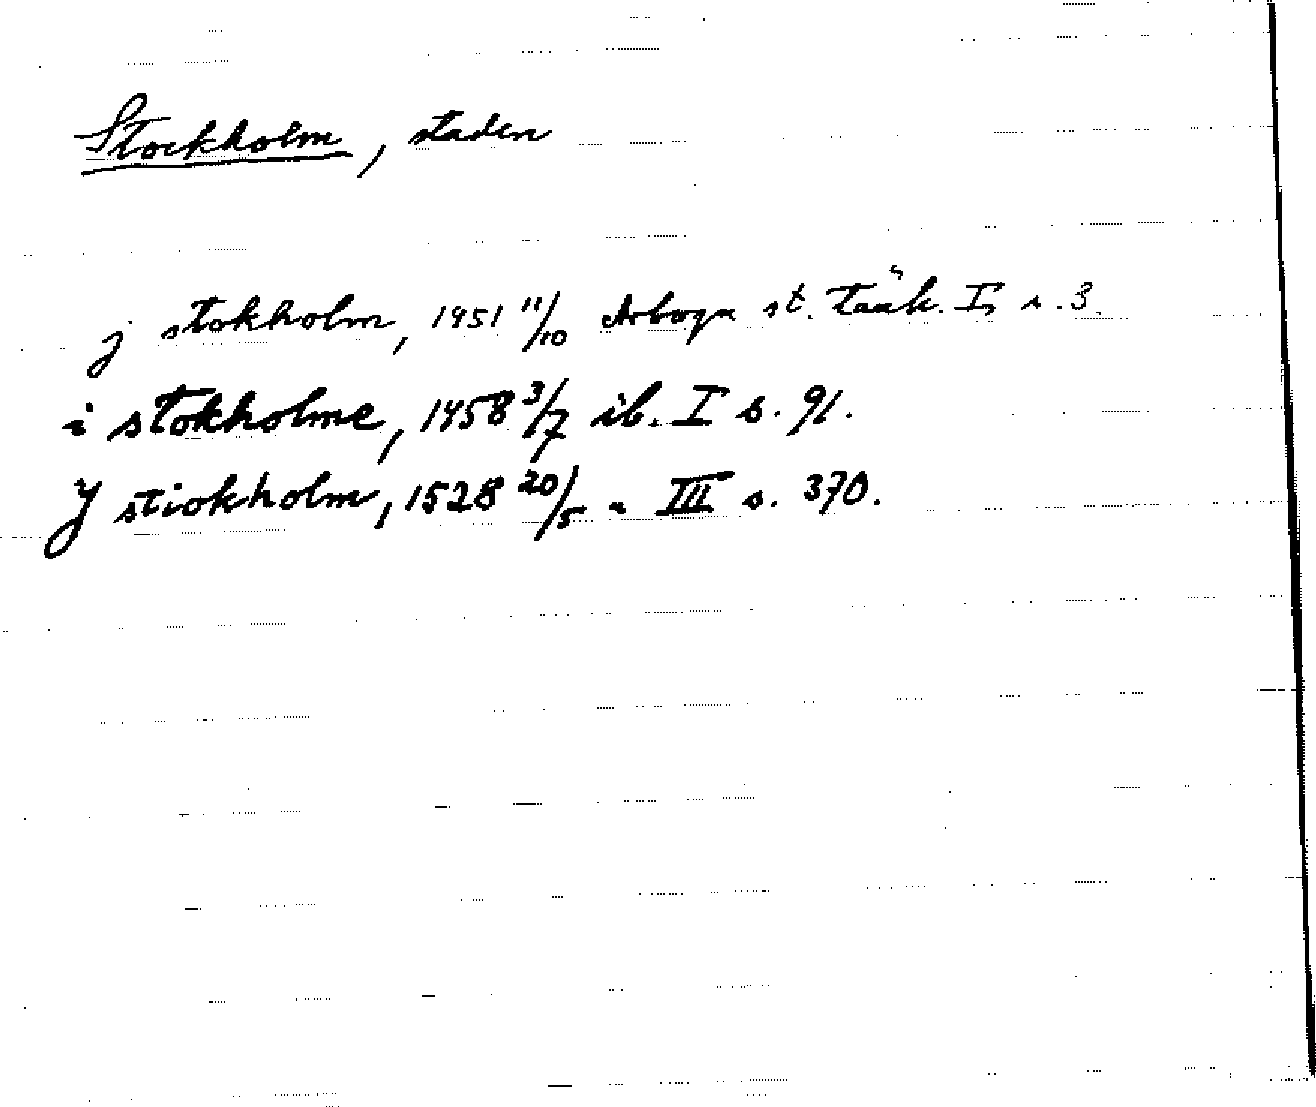 Stockholm, staden
j stokholm, 1451 11/10 Arboga st. tänk. I, s. 3.
i stokholme, 1458 3/7 ib. I s. 91.
J stiokholm, 1528 20/5 " III s. 370.